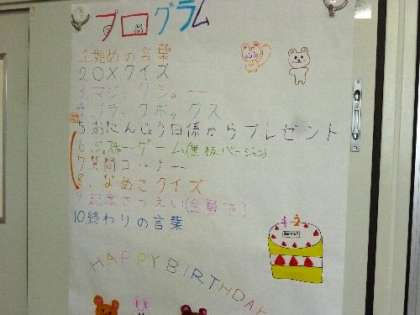 プログラム
1.始めの言葉
2.OXクイズ
3.マジックショー
4.ブラックボックス
5.おたんじょう日係からプレゼント
ゲーム(黒板バージョン)
7.質問コーナー
8.なめこクイズ
10.終わりの言葉
HAPPY BIRTHDAY